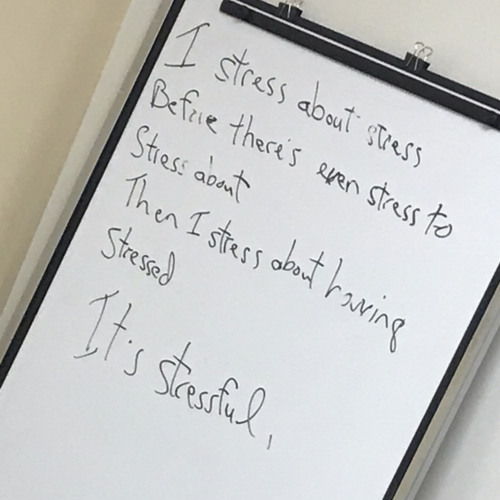 I stress about stress
Before there's even stress to
Stress about
Then I stress about having
Stressed
It's stressful,